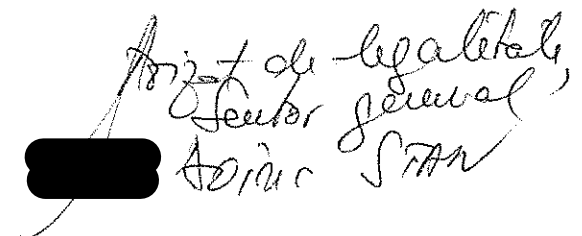 Avizat de legalitate,
Secretar general,
Adinc STAN